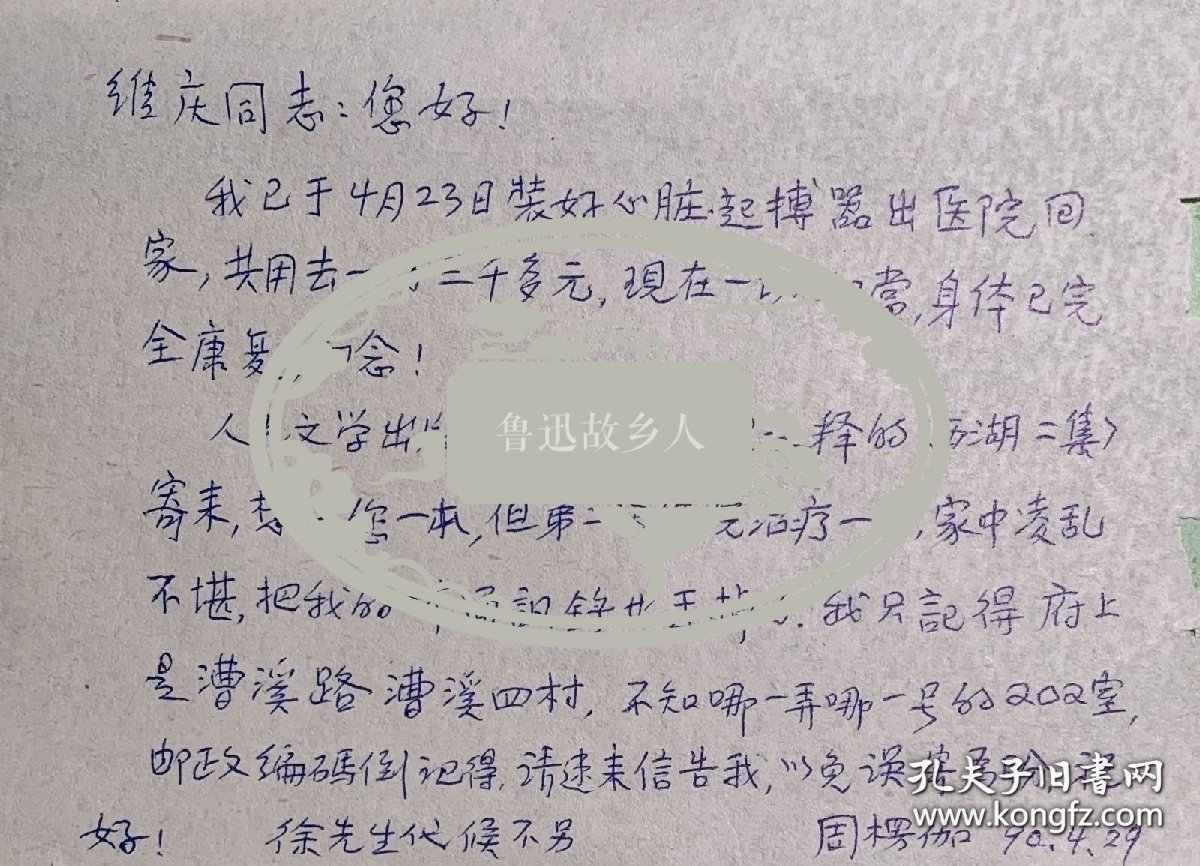 维庆同志：您好！
我已于4月23日装好心脏起搏器出医院回
家，共用去一 二千多元，現在一 常，身体已完
全康复， 念！
人 文学出 择的 湖二集〉
鲁迅故乡人
寄来， 一本，但第二 治疗一 ，家中凌乱
不堪，把我的 我只記得府上
是漕溪路漕溪四村，不知哪一弄哪一号的202室，
邮政编碼倒记得，请速来信告我，以免误
好！ 徐先生代候不另 周楞伽 90.4.29
孔夫子旧书网
www.kongfz.com